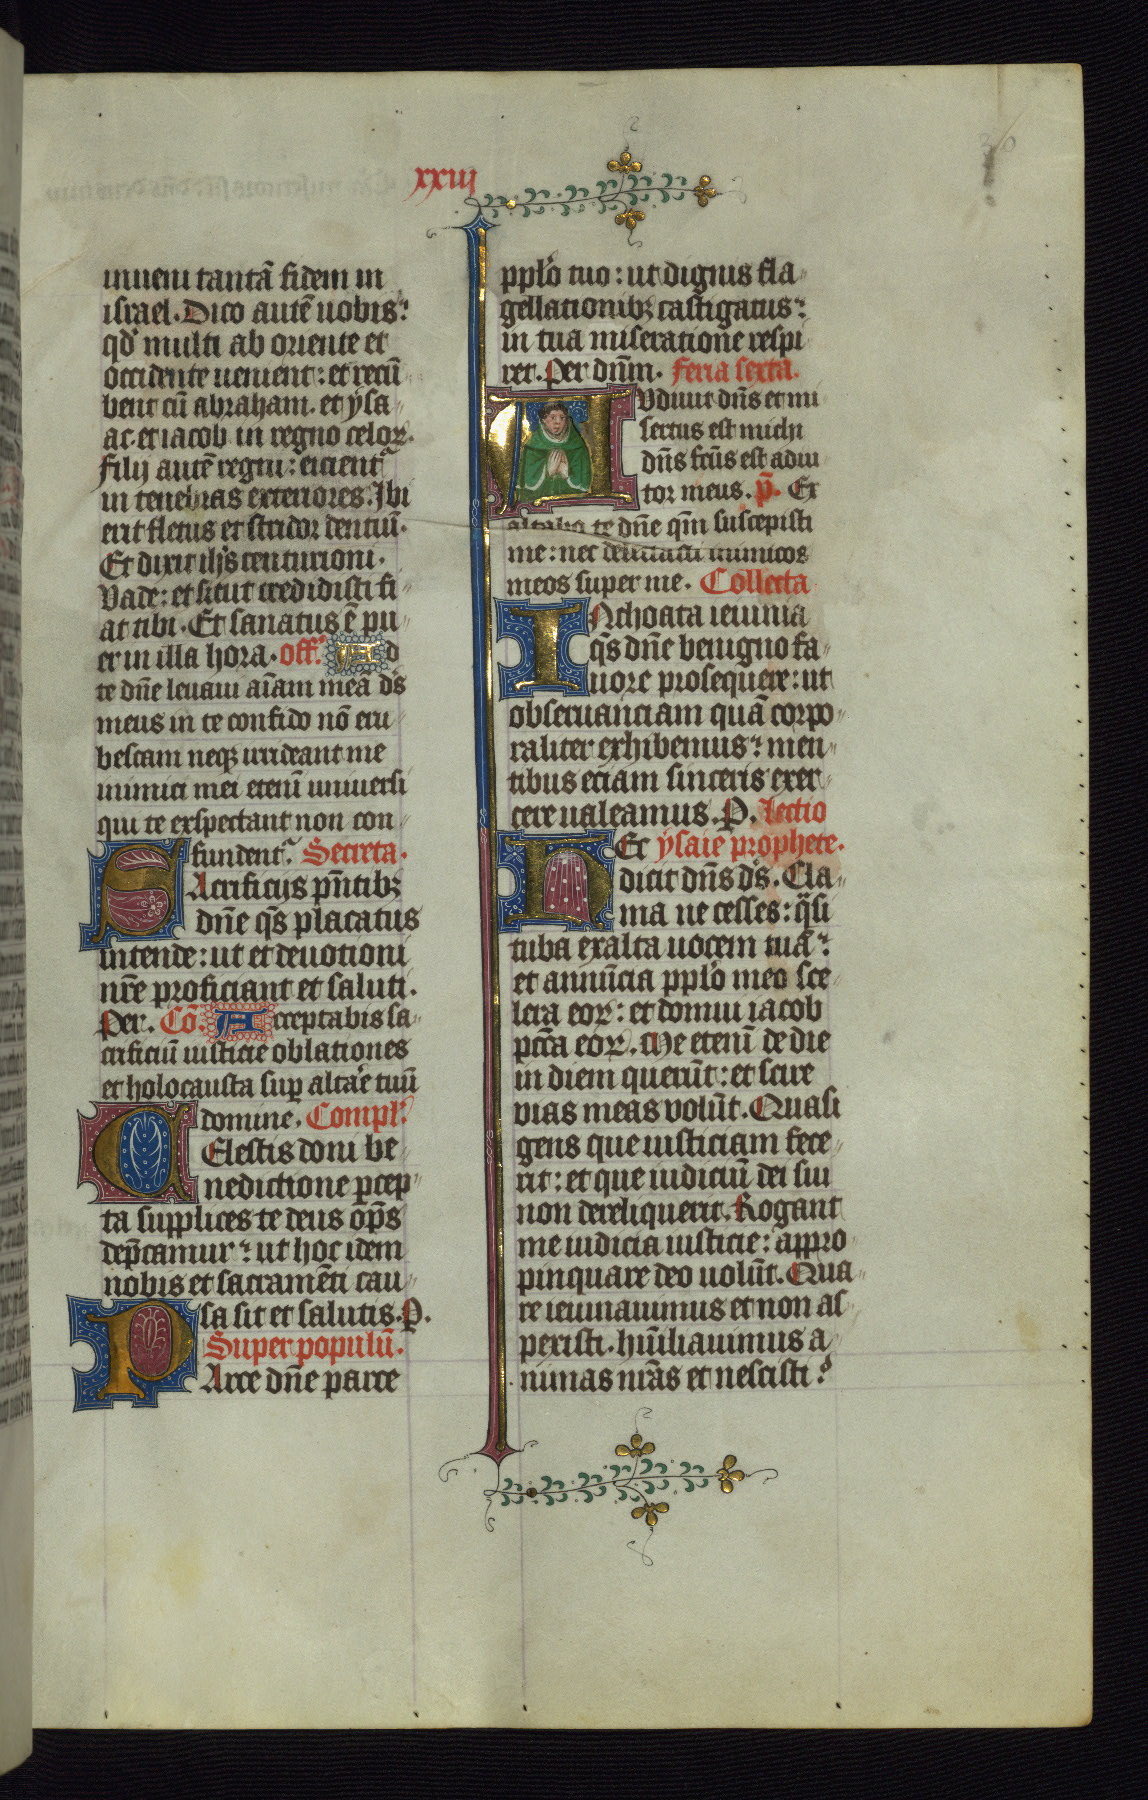 xxiii
inueni tantā fidem in
israel. Dico autē uobis:
qđ multi ab oriente et
occidente uenient: et recū
bent cū abraham. et ysa
ac. et iacob in regno celoꝝ.
filij autē regni: eicient᷑
in tenebras exteriores. Ibi
erit fletus et stridor dentiū.
Et dixit ih̄s centurioni.
Vade: et sicut credidisti fi
at tibi. Et sanatus ē pu
er in illa hora. off. Ad
te dn̄e leuaui aīam meā ds̄
meus in te confido nō eru
bescam neqꝫ irrideant me
inimici mei etenī uniuersi
qui te exspectant non con
fundent᷑. Secreta.
Sacrificijs pn̄tibꝫ
dn̄e qs̄ placatus
intende: ut et deuotioni
nr̄e proficiant et saluti.
Per. Cō. Acceptabis sa
crificiū iusticie oblationes
et holocausta suꝑ altar̄e tuū
domine. Compl.
Celestis doni be
nedictione ꝑcep
ta supplices te deus op̄s
dep̄camur: ut hoc idem
nobis et sacramēti cau
sa sit et salutis. P.
Super populū.
Parce dn̄e parce
pplo tuo: ut dignis fla
gellationibꝫ castigatus:
in tua miseratione respi
ret. Per dn̄m. Feria sexta.
Audiuit dn̄s et mi
sertus est michi
dn̄s fc̄us est adiu
tor meus. p̄. Ex
altabo te dn̄e qm̄ suscepisti
me: nec delectasti inimicos
meos super me. Collecta
Inchoata ieiunia
qs̄ dn̄e benigno fa
uore prosequere: ut
obseruanciam quā corpo
raliter exhibemus: men
tibus eciam sinceris exer
cere ualeamus. P. Lectio
Hec ysaie prophete.
dicit dn̄s ds̄. Cla
ma ne cesses: q̄si
tuba exalta uocem tuā:
et annūcia pplo meo sce
lera eoꝝ: et domui iacob
pctā eoꝝ. Me etenī de die
in diem querūt: et scire
vias meas volūt. Quasi
gens que iusticiam fece
rit: et que iudiciū dei sui
non dereliquerit. Rogant
me iudicia iusticie: appro
pinquare deo uolūt. Qua
re ieiunauimus et non as
pexisti. hūiliauimus a
nimas nr̄as et nescisti?